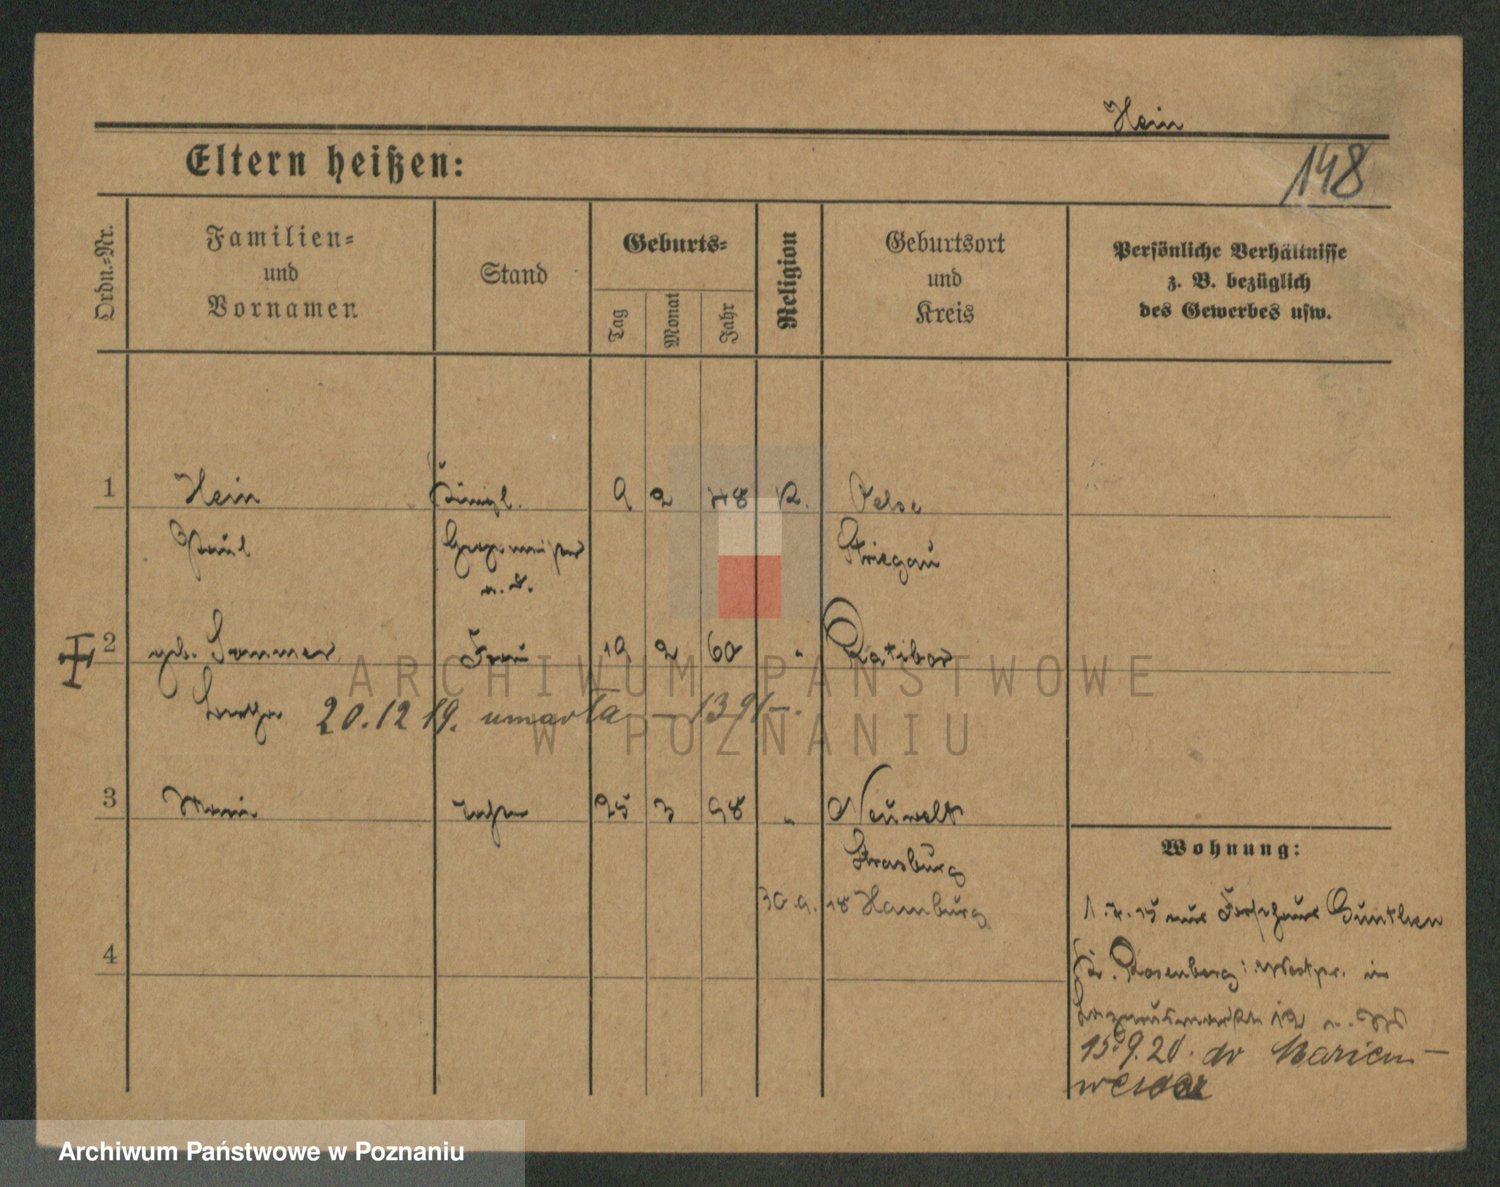 Hein
148
Eltern heißen:
Ordn.-Nr.
Familien-
und
Vornamen
Stand
Geburts-
Tag
Monat
Jahr
Religion
Geburtsort
und
Kreis
Persönliche Verhältnisse
z. B. bezüglich
des Gewerbes usw.
1 Hein Königl. 9 2 48 K. Oelse
Paul Hegemeister Striegau
a. D.
2 geb. Sommer Frau 19 2 60 " Ratibor
20.12.19. umarła – 1391 –.
3 Marie Tochter 25 3 98 " Neuwelt
Strasburg
30.9.18 Hamburg
4
Wohnung:
1.7.15 aus Forsthaus Gunthen
Kr. Rosenberg Westpr. in
12
15.9.20. do Marien-
werder
ARCHIWUM PAŃSTWOWE
W POZNANIU
Archiwum Państwowe w Poznaniu